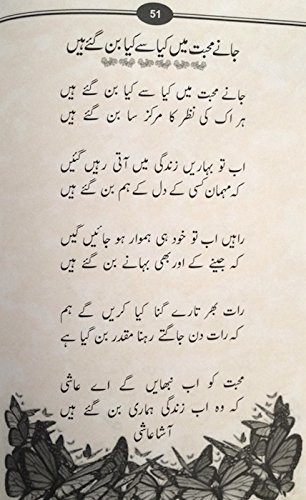 51
جانے محبت میں کیا سے کیا بن گئے ہیں
جانے محبت میں کیا سے کیا بن گئے ہیں
ہر اک کی نظر کا مرکز سا بن گئے ہیں
اب تو بہاریں زندگی میں آتی رہیں گئیں
کہ مہمان کسی کے دل کے ہم بن گئے ہیں
راہیں اب تو خود ہی ہموار ہو جائیں گیں
کہ جینے کے اور بھی بہانے بن گئے ہیں
رات بھر تارے گنا کیا کریں گے ہم
کہ رات دن جاگتے رہنا مقدر بن گیا ہے
محبت کو اب نبھائیں گے اے عاشی
کہ وہ اب زندگی ہماری بن گئے ہیں
آشا عاشی